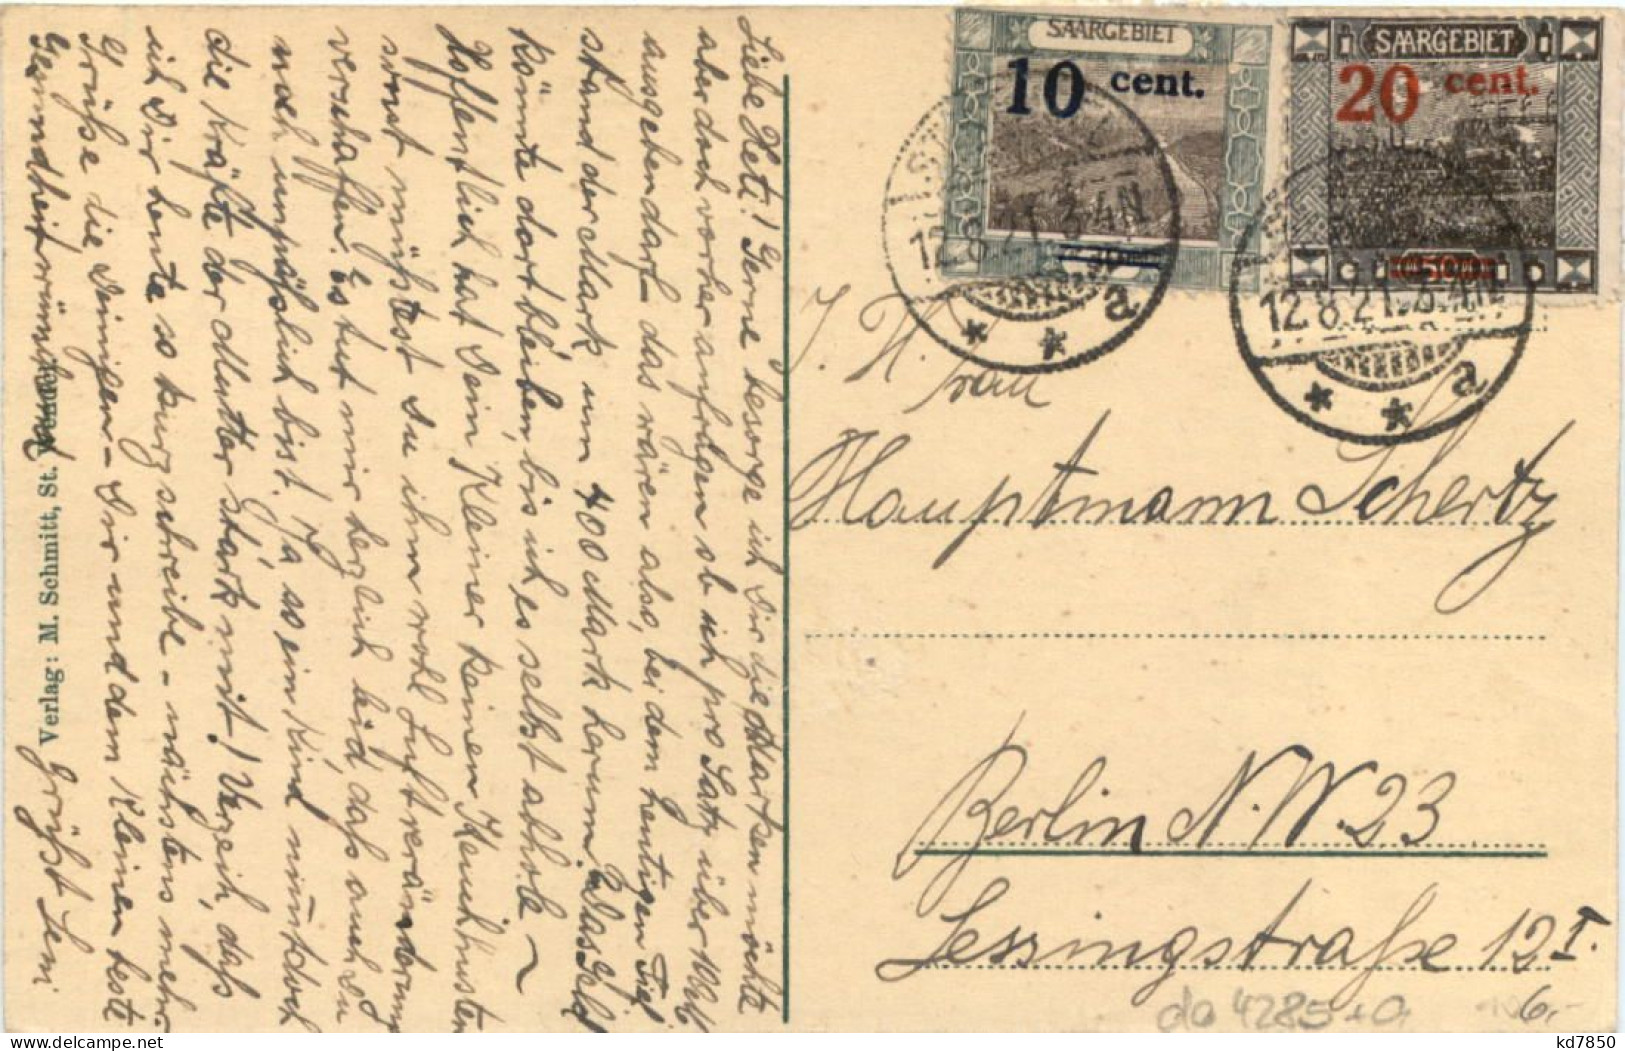 Liebe Heti! Gerne besorge ich Dir die Karten möchte
aber doch vorher anfragen ob ich pro Satz über 10 Mk
ausgeben darf – das wären also, bei dem heutigen Tief
stand der Mark um 400 Mark herum. Das Geld
könnte dort bleiben, bis ich es selbst abhole ~
Hoffentlich hat Dein Kleiner keinen Keuchhusten
sonst müsstest Du ihm wohl Luftveränderung
verschaffen. Es tut mir herzlich leid dass auch Du
noch unpässlich bist. Ja so ein Kind nimmt doch
die Kräfte der Mutter stark mit! Verzeih, dass
ich Dir heute so kurz schreibe – nächstens mehr.
Grüße die Deinigen – Dir und dem Kleinen beste
Gesundheit wünschend
Grüßt Leni
Verlag: M. Schmitt, St. Wendel
SAARGEBIET
10 cent.
SAARGEBIET
20 cent.
50
12.8.21. 3-4N
* * a
12.8.21. 3-4N
* * a
Frau
Hauptmann Schertz
Berlin N.W. 23
Lessingstraße 12 I.
do 4285+a
6,-
kd7850